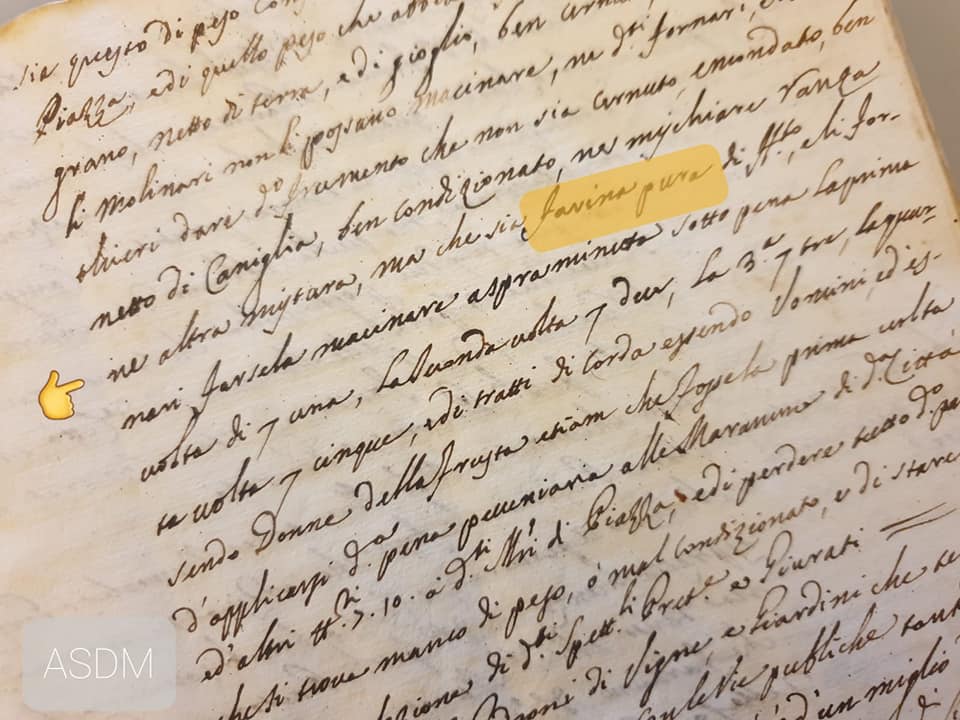 sia questo di peso
Piazza, e di quello peso che
grano, netto di terra, e di gioglio, ben
li Molinari non li possano macinare, ne d.ti fornari,
dare d.o frumento che non sia cernuto, emondato, ben
netto di Caniglia, ben condizionato, ne myschiare
ne altra mystura, ma che sia farina pura di ff.to, e li for-
nari farsela macinare aspra minuta sotto pena la prima
volta di 7 una, la seconda volta 7 due, la 3.a 7 tre, la quar-
ta volta 7 cinque, e di tratti di corda essendo Uomini, ed es-
sendo Donne della frusta etiam che fosse la prima volta
d'applicarsi d.a pena pecuniaria alle Maramme di d.a Città
ed'altri tt. 7.10. a d.ti Mri di Piazza, e di perdere tutto d.o
che si trova manco di peso, ò mal condizionato, e di stare
di d.ti Spett.li Pret.e e Giurati
di Vigne, e Giardini che
le vie publiche
d'un miglio
ASDM